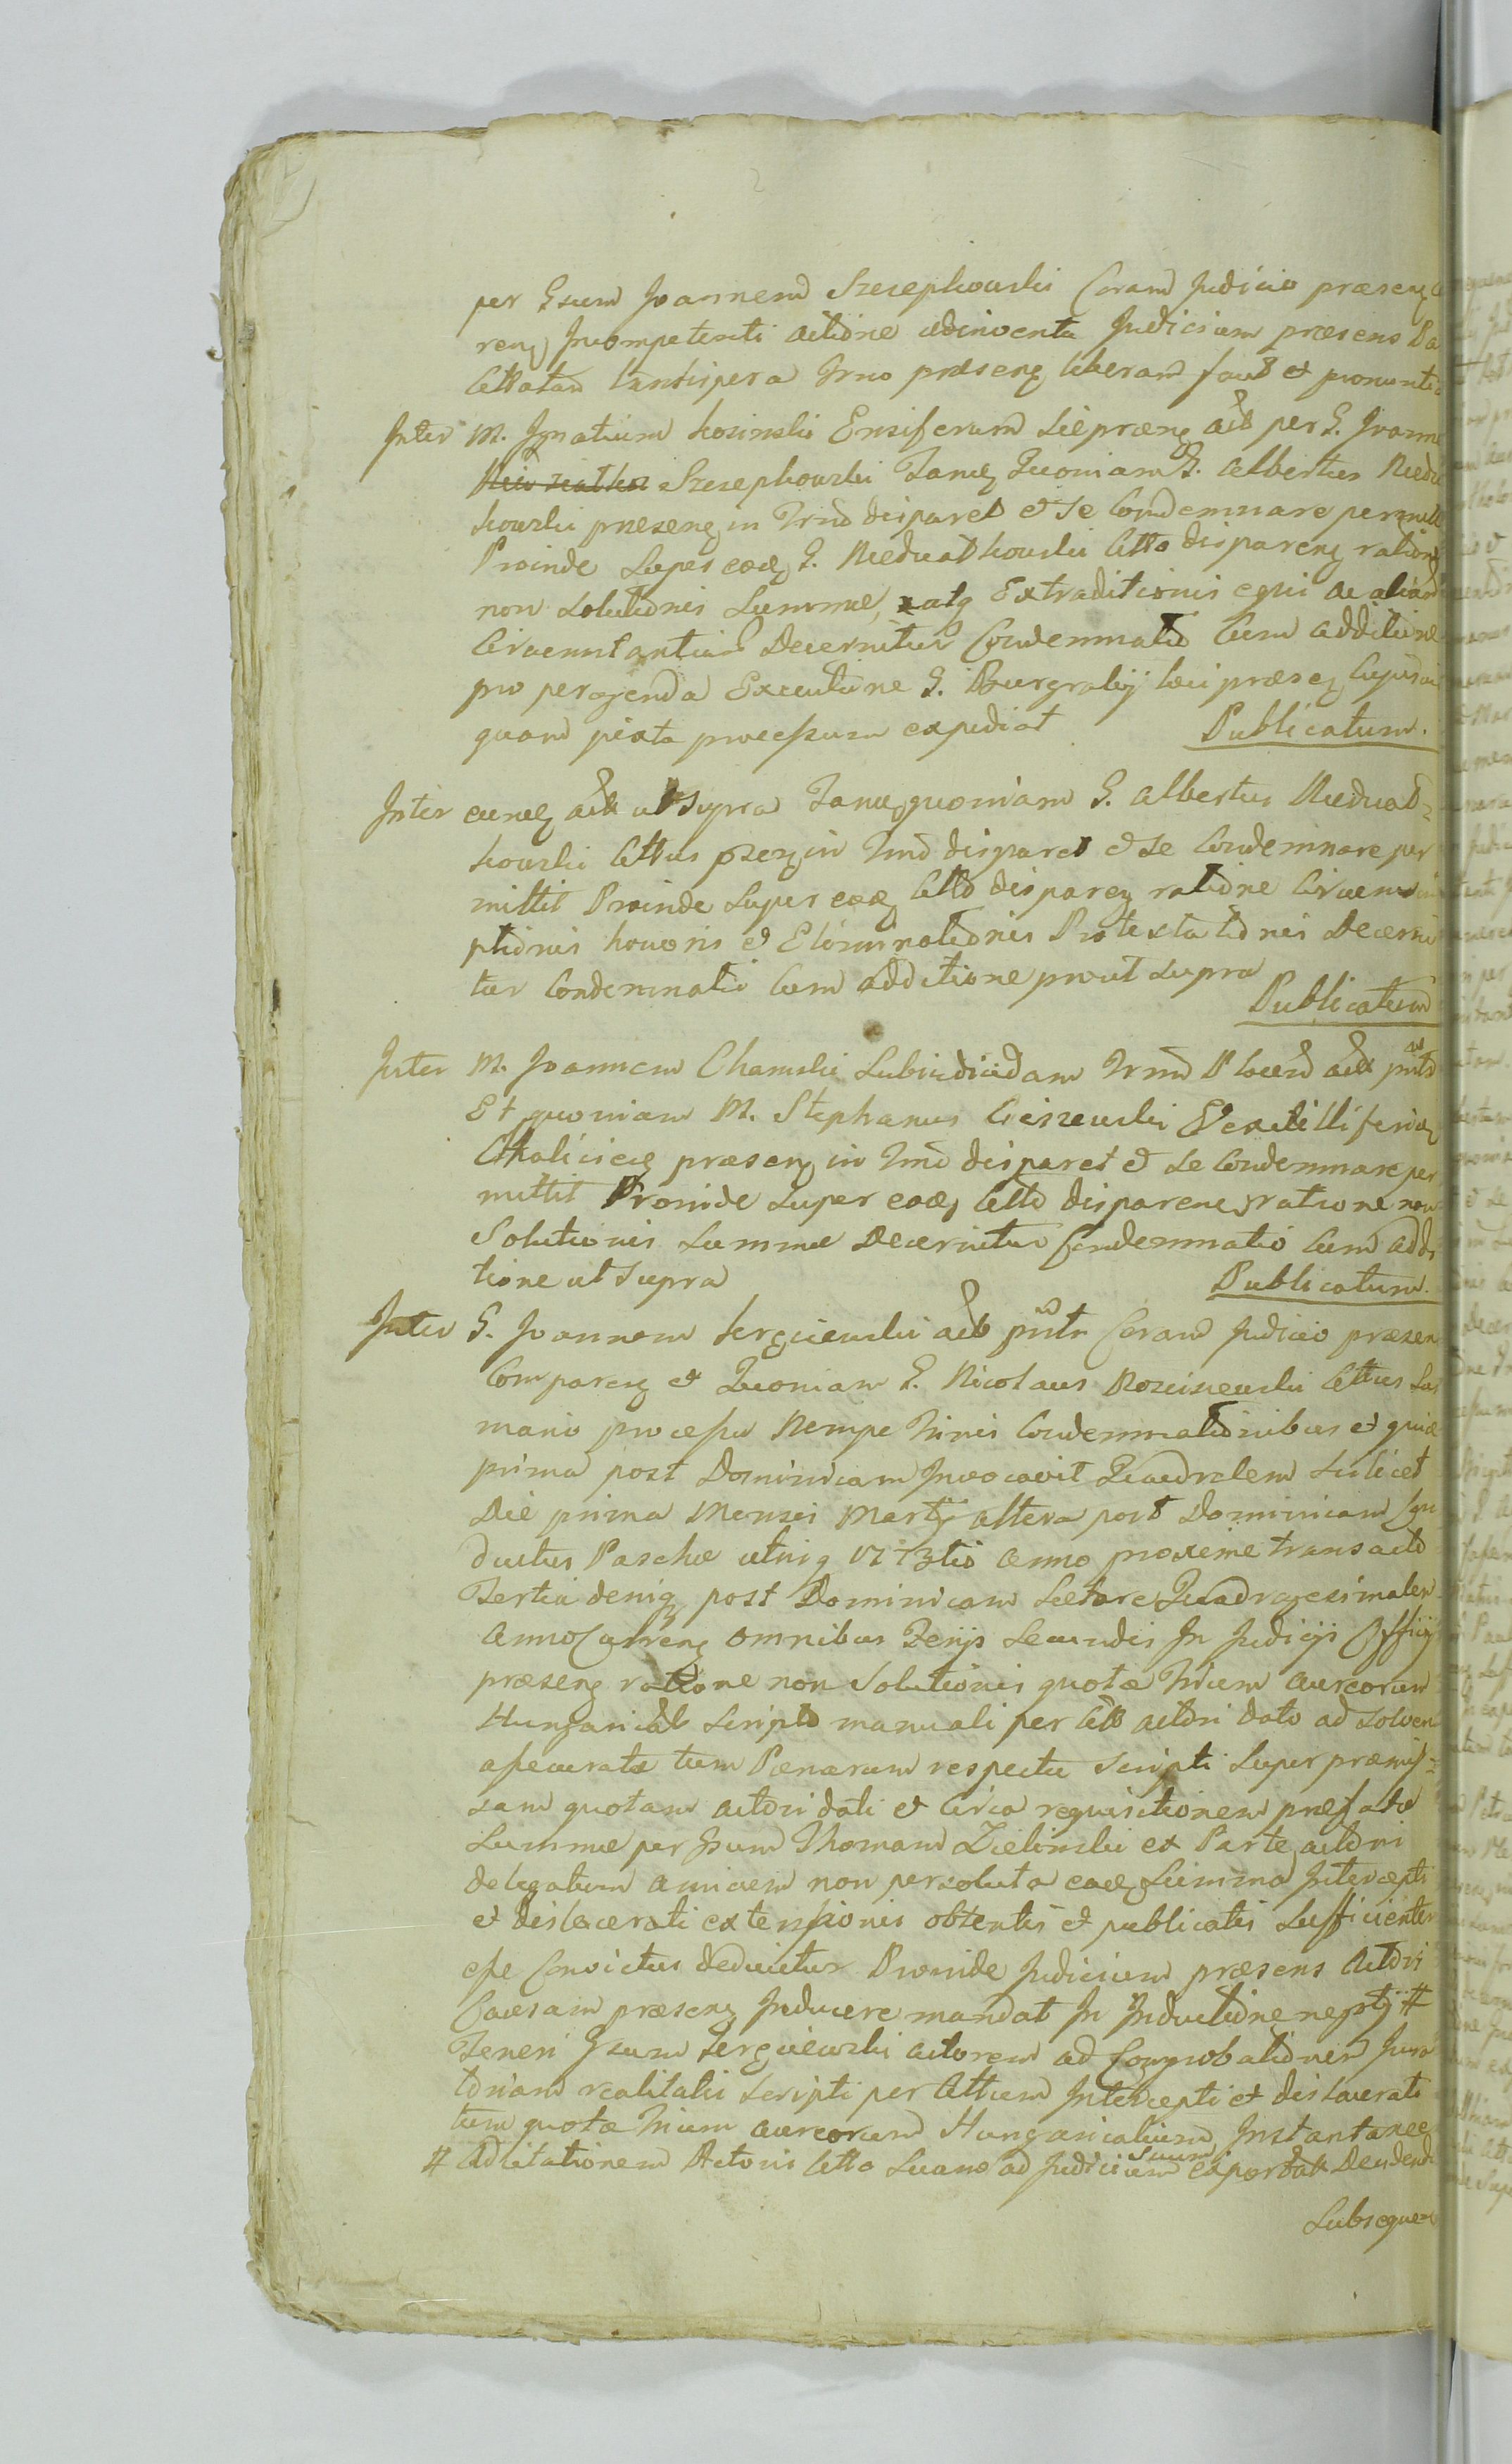 per Gsum Joannem Szczepkowski Coram Judicio præseng
reng Incompetenti actione adinventa Judicium præsens
Cittatam Trno præseng liberam facit et pronuntia
Inter M. Ignatium Kosinski Ensiferum Siepræng act per G. Joanne
Szczepkowski Tanq Quoniam G. Albertus Niedu
kowski præseng in Trno disparet et se Condemnare permitt
Proinde Super eoq G. Nieduatkowski Ctto dispareng ratione
non Solutionis Summæ, atq Extraditionis equi ac aliarum
Circumstantiarum Decernitur Condemnatio Cum additione
pro peragenda Executione G. Burgrabij loci præseg
quam juxta processum expediat Publicatum.
Inter eunq act ut Supra Tanq quoniam G. Albertus Nieduat=
kowski Cttus pseng in Trno disparet et se Condemnare per
mittit Proinde Super eoq Ctto dispareg ratione
ptionis honoris et Eliminationis Protestationis Decerni
tur Condemnatio Cum additione prout Supra
Publicatum
Inter M. Joannem Chamski Subiudicudam Trno Plocen act
Et quoniam M. Stephanus Cieszewski Vexilliferi
præseng in Trno disparet et se Condemnare per
mittit Proinde Super eoq Ctto disparenq ratione non
Solutionis Summæ Decernitur Condemnatio Cum addi
tione ut Supra Publicatum.
Inter G. Joannem act Coram Judicio præsen
Compareng et Quoniam G. Nicolaus Rosciszewski Cttus
mario processu Nempe Trinis Condemnationibus et quidem
prima post Dominicam Invocavit Quadralem Scilicet
Die prima Mensis Martij altera post Dominicam Con
ductus Paschæ utriq 1773tio Anno proxime transacto
Tertia deniq post Dominicam Lætare Quadragesimalem
Anno Curreng omnibus Terijs Secundis In Judicijs Officij
præseng ratione non Solutionis quotæ Trium aureorum
Hungarical Scripto manuali per Ctt actori dato ad Solven
assecuratæ tum Pœnarum respectu Scripti Super præmis=
sam quotam actori dati et Circa requisitionem præfatæ
Summæ per Gsum Thomam Zielinski ex Parte actori
delegatum amicum non persoluta eaq Summa Intercepti
et dislacerati extensionis obtentis et publicatis Sufficienter
esse Convictus deducitur Proinde Judicium præsens Actori
Causam præseng Inducere mandat In Inductione #
Teneri Gsum actorem ad Comprobationem Jura
toriam realitatis Scripti per Cttum Intercepti et dislacerati
tum quotæ Trium aureorum Hungaricalium Instantanee
# Ad Citationem Actoris Ctto Suam ad Judicium Suum
Subsequen